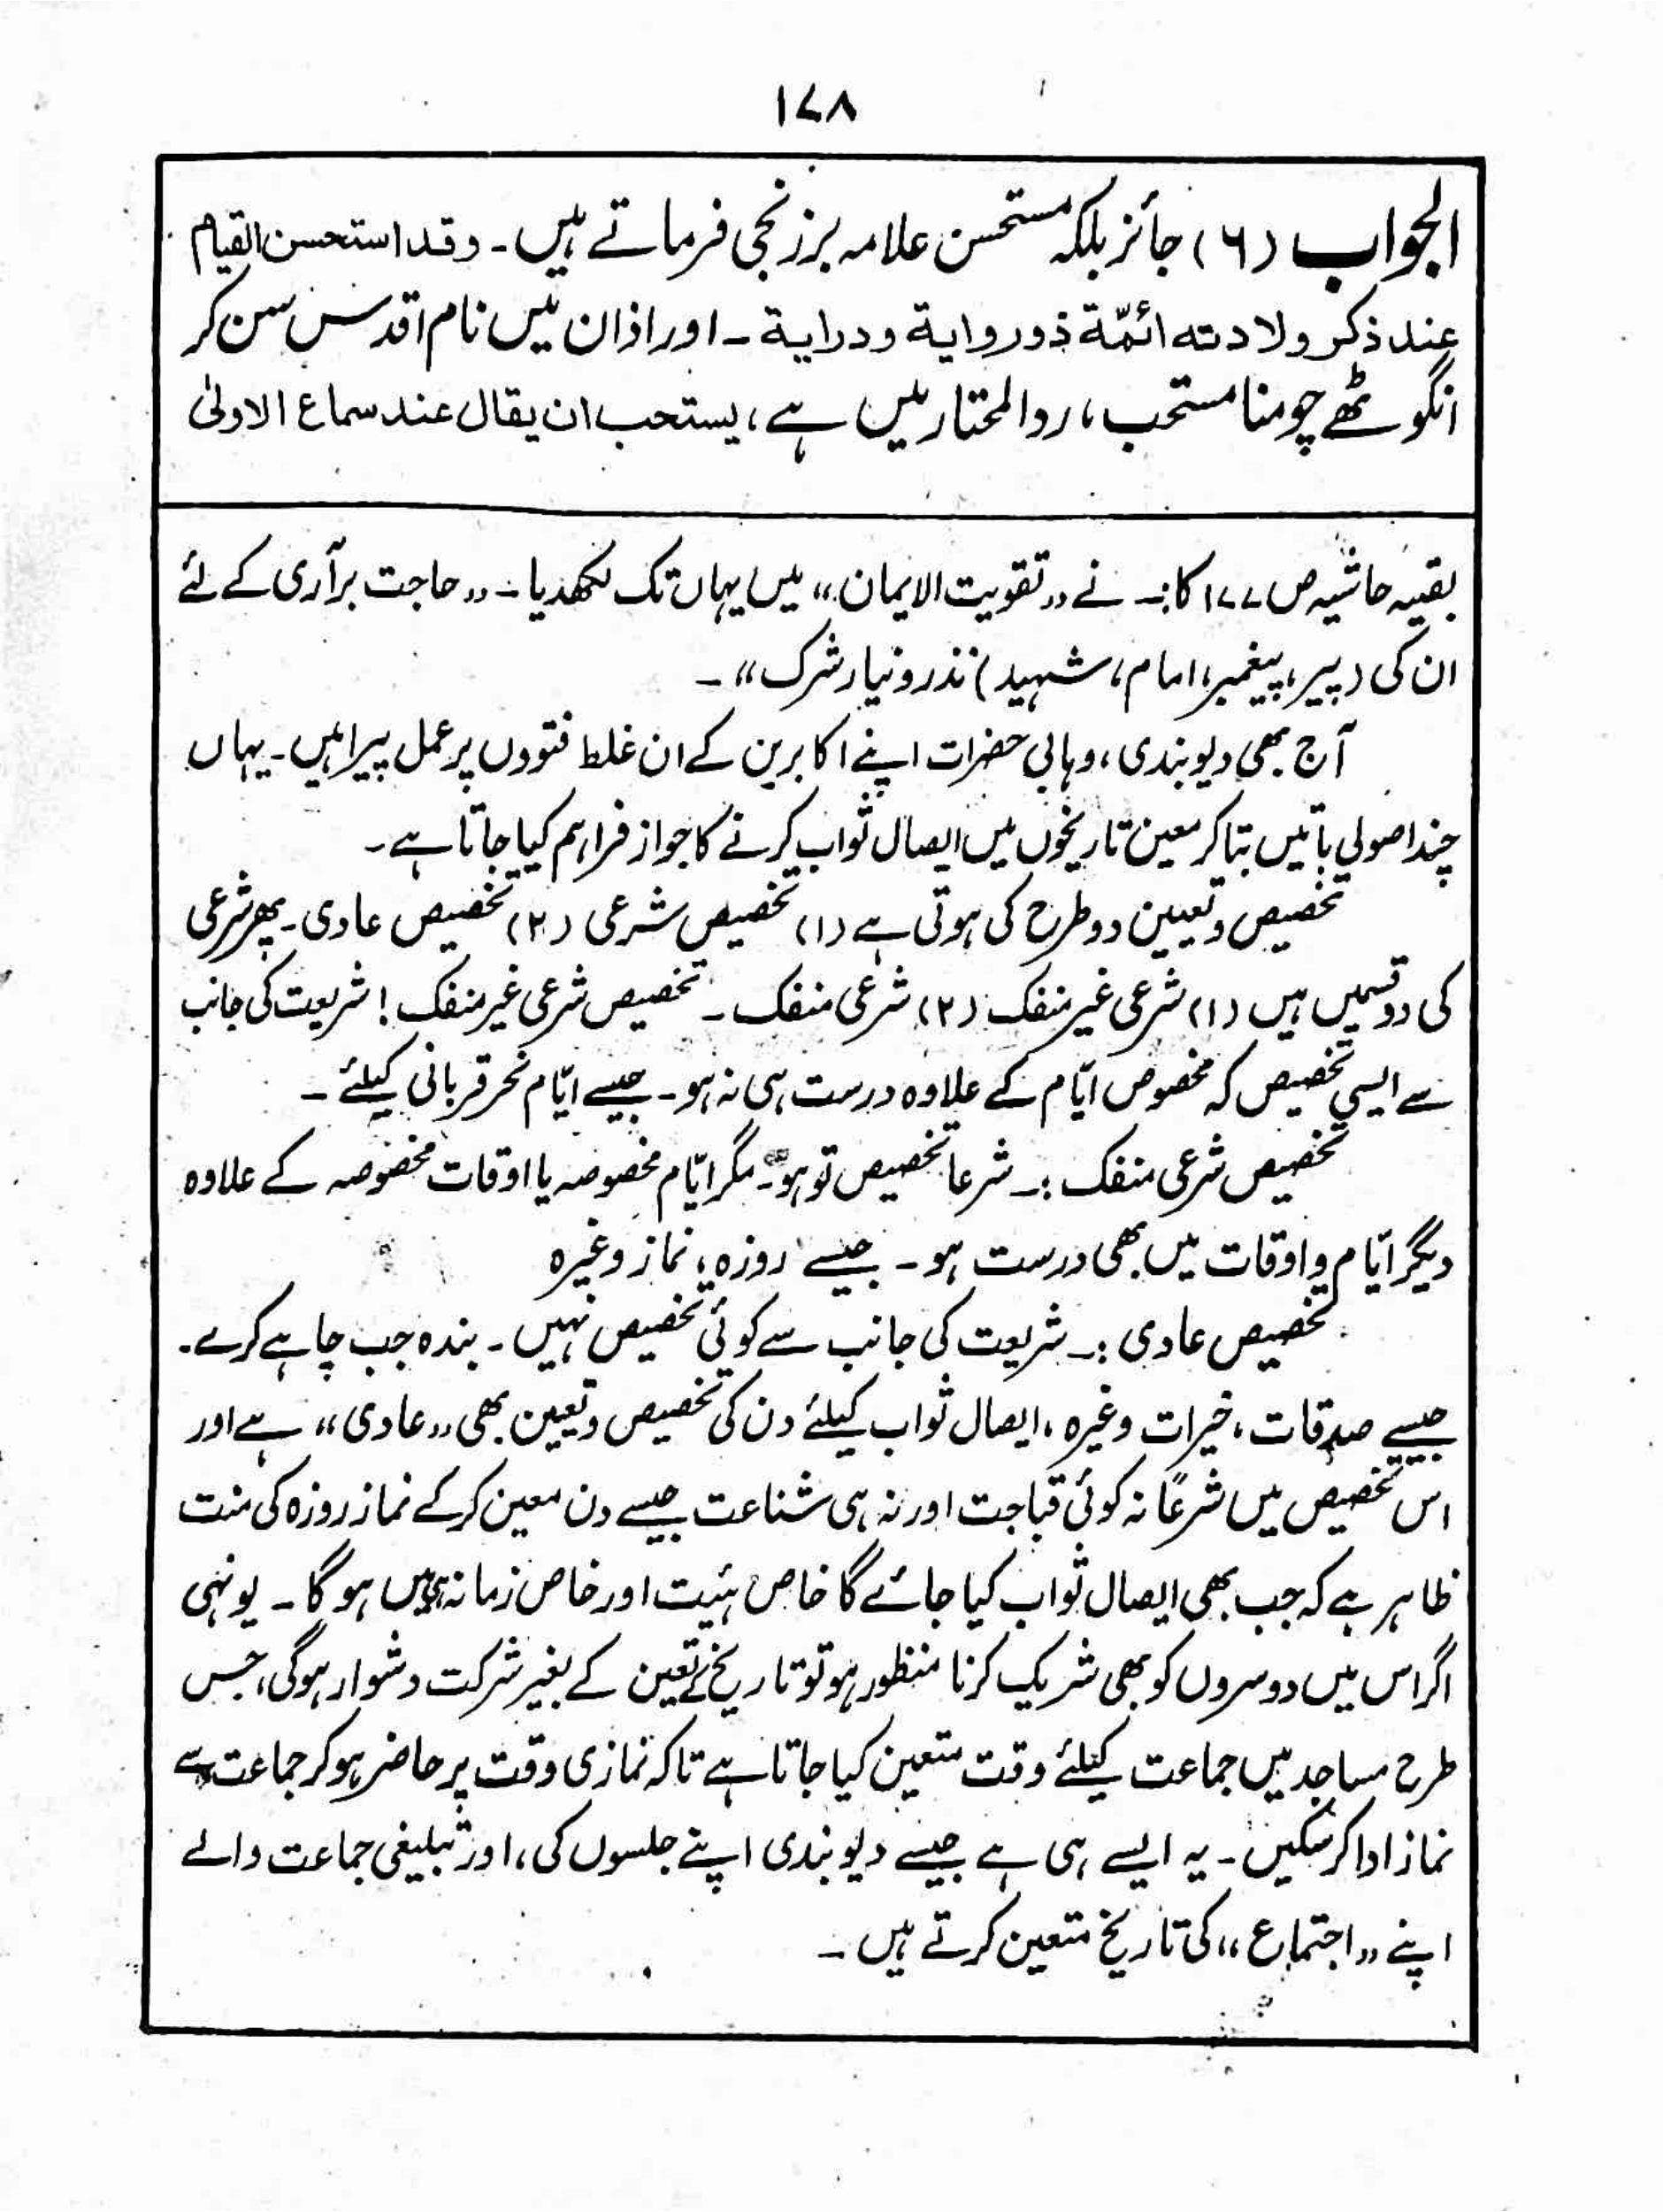 ۱۷۸
الجواب (۶) جائز بلکہ مستحسن علامہ برزنجی فرماتے ہیں۔ وقد استحسن القیام
عند ذکر ولادته ائمّة ذو روایة و درایة ۔ اور اذان میں نام اقدس سن کر
انگوٹھے چومنا مستحب، ردالمحتار میں ہے، یستحب ان یقال عند سماع الاولیٰ
بقیہ حاشیہ ص ۱۷۷ کا:۔ نے ,,تقویت الایمان،، میں یہاں تک لکھدیا۔ ,,حاجت برآری کے لئے
ان کی (پیر، پیغمبر، امام، شہید) نذر و نیاز شرک،،۔
آج بھی دیوبندی، وہابی حضرات اپنے اکابرین کے ان غلط فتووں پر عمل پیرا ہیں۔ یہاں
چند اصولی باتیں بتا کر معین تاریخوں میں ایصال ثواب کرنے کا جواز فراہم کیا جاتا ہے۔
تخصیص و تعیین دو طرح کی ہوتی ہے (۱) تخصیص شرعی (۲) تخصیص عادی۔ پھر شرعی
کی دو قسمیں ہیں (۱) شرعی غیر منفک (۲) شرعی منفک۔ تخصیص شرعی غیر منفک! شریعت کی جانب
سے ایسی تخصیص کہ مخصوص ایّام کے علاوہ درست ہی نہ ہو۔ جیسے ایّام نحر قربانی کیلئے۔
تخصیص شرعی منفک:۔ شرعا تخصیص تو ہو۔ مگر ایّام مخصوصہ یا اوقات مخصوصہ کے علاوہ
دیگر ایّام و اوقات میں بھی درست ہو۔ جیسے روزہ، نماز وغیرہ
تخصیص عادی:۔ شریعت کی جانب سے کوئی تخصیص نہیں۔ بندہ جب چاہے کرے۔
جیسے صدقات، خیرات وغیرہ، ایصال ثواب کیلئے دن کی تخصیص و تعیین بھی ,,عادی،، ہے اور
اس تخصیص میں شرعًا نہ کوئی قباحت اور نہ ہی شناعت جیسے دن معین کر کے نماز روزہ کی منت
ظاہر ہے کہ جب بھی ایصال ثواب کیا جائے گا خاص ہئیت اور خاص زمانہ ہی میں ہو گا۔ یونہی
اگر اس میں دوسروں کو بھی شریک کرنا منظور ہو تو تاریخ کے تعین کے بغیر شرکت دشوار ہوگی، جس
طرح مساجد میں جماعت کیلئے وقت متعین کیا جاتا ہے تاکہ نمازی وقت پر حاضر ہو کر جماعت سے
نماز ادا کر سکیں۔ یہ ایسے ہی ہے جیسے دیوبندی اپنے جلسوں کی، اور تبلیغی جماعت والے
اپنے ,,اجتماع،، کی تاریخ متعین کرتے ہیں۔